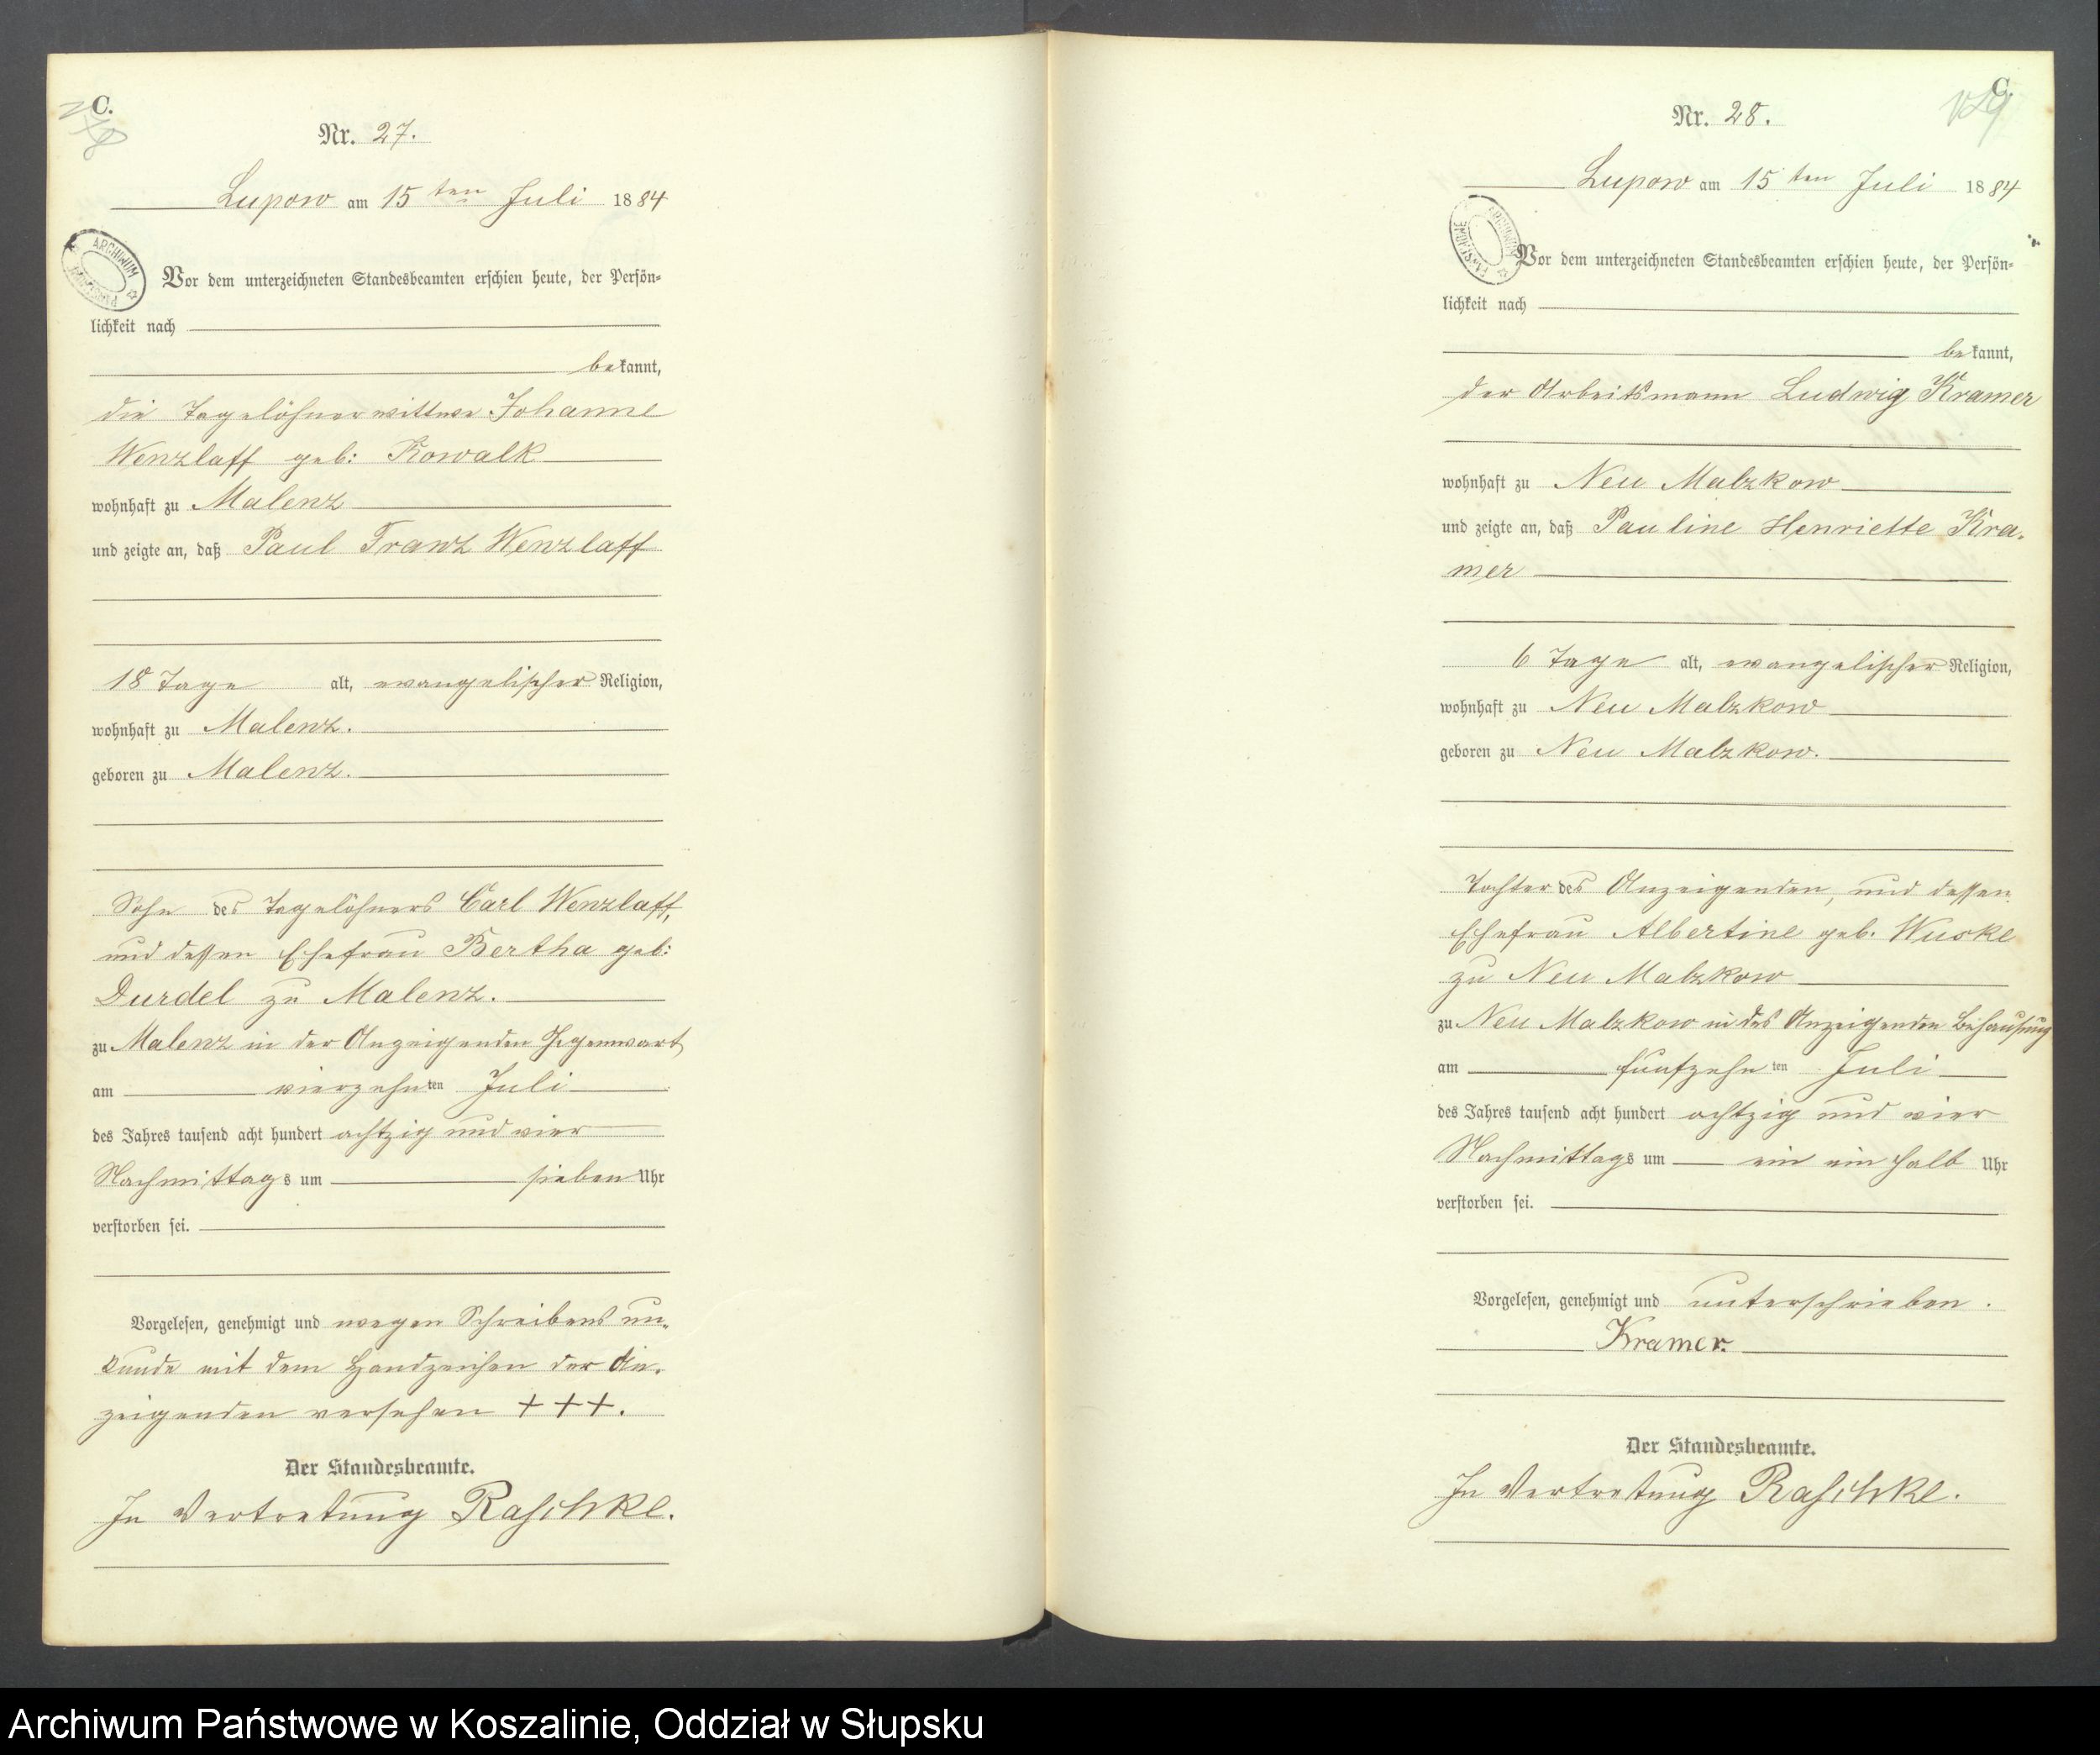 C.
Nr. 27.
Lupow am 15ten Juli 1884
ARCHIWUM
Vor dem unterzeichneten Standesbeamten erschien heute, der Persön-
lichkeit nach
bekannt,
die Tagelöhnerwittwe Johanne
Wenzlaff geb: Kowalk
wohnhaft zu Malenz
und zeigte an, daß Paul Franz Wenzlaff
18 Tage alt, evangelischer Religion,
wohnhaft zu Malenz.
geboren zu Malenz.
Sohn des Tagelöhners Carl Wenzlaff,
und dessen Ehefrau Bertha geb:
Durdel zu Malenz.
zu Malenz in der Anzeigenden Gegenwart
am vierzehnten Juli
des Jahres tausend acht hundert achtzig und vier
Nachmittags um sieben Uhr
verstorben sei.
Vorgelesen, genehmigt und wegen Schreibens un-
kunde mit dem Handzeichen der An-
zeigenden versehen +++.
Der Standesbeamte.
In Vertretung Raschke.
C.
Nr. 28.
Lupow am 15ten Juli 1884
Vor dem unterzeichneten Standesbeamten erschien heute, der Persön-
lichkeit nach
bekannt,
der Arbeitsmann Ludwig Kramer
wohnhaft zu Neu Malzkow
und zeigte an, daß Pauline Henriette Kra-
mer
6 Tage alt, evangelischer Religion,
wohnhaft zu Neu Malzkow
geboren zu Neu Malzkow.
Tochter des Anzeigenden, und dessen
Ehefrau Albertine geb. Wuske
zu Neu Malzkow
zu Neu Malzkow in des Anzeigenden Behausung
am fünfzehnten Juli
des Jahres tausend acht hundert achtzig und vier
Nachmittags um ein ein halb Uhr
verstorben sei.
Vorgelesen, genehmigt und unterschrieben.
Kramer.
Der Standesbeamte.
In Vertretung Raschke.
Archiwum Państwowe w Koszalinie, Oddział w Słupsku